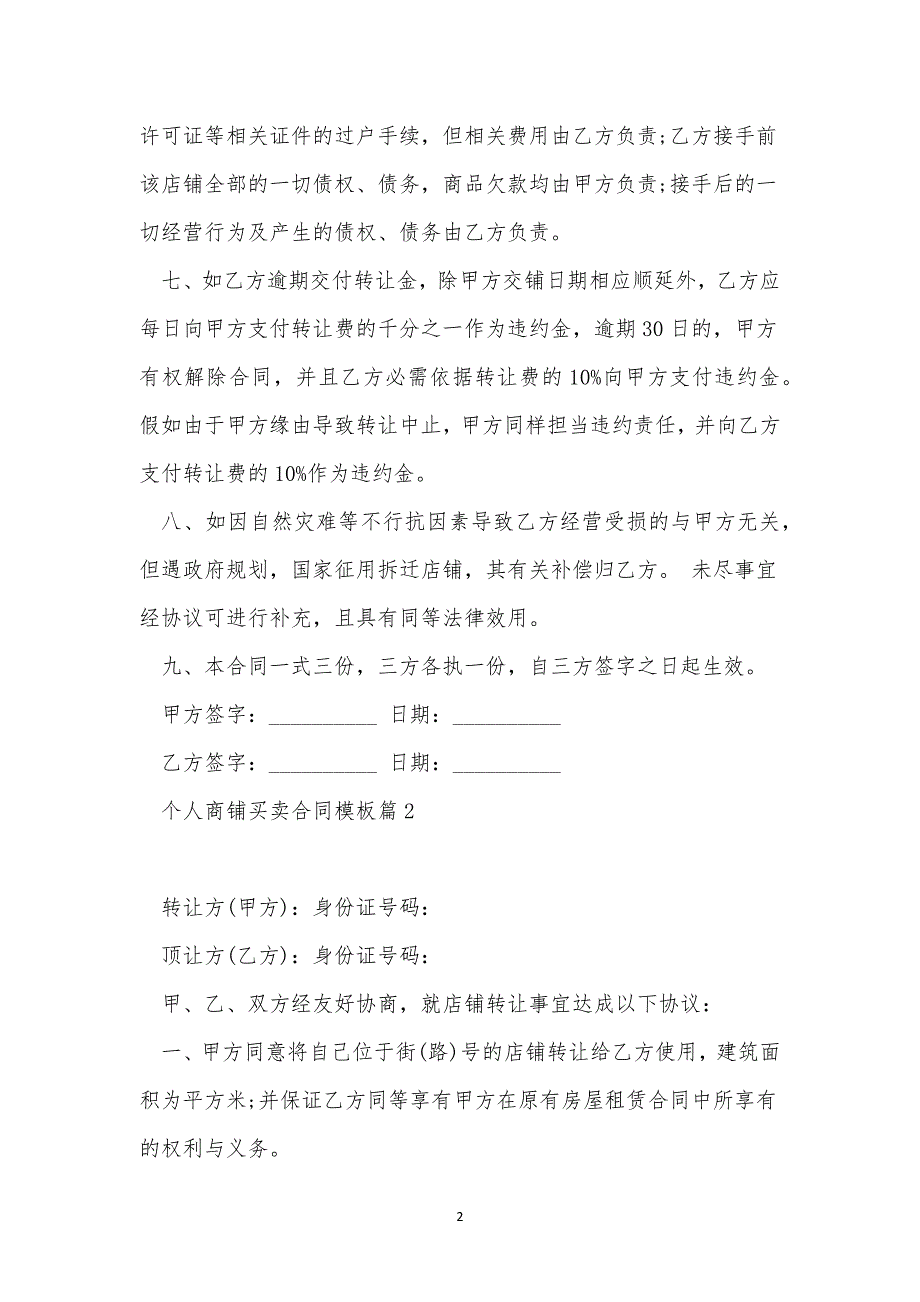 许可证等相关证件的过户手续，但相关费用由乙方负责;乙方接手前
该店铺全部的一切债权、债务，商品欠款均由甲方负责;接手后的一
切经营行为及产生的债权、债务由乙方负责。
七、如乙方逾期交付转让金，除甲方交铺日期相应顺延外，乙方应
每日向甲方支付转让费的千分之一作为违约金，逾期30日的，甲方
有权解除合同，并且乙方必需依据转让费的10%向甲方支付违约金。
假如由于甲方缘由导致转让中止，甲方同样担当违约责任，并向乙方
支付转让费的10%作为违约金。
八、如因自然灾难等不行抗因素导致乙方经营受损的与甲方无关，
但遇政府规划，国家征用拆迁店铺，其有关补偿归乙方。 未尽事宜
经协议可进行补充，且具有同等法律效用。
九、本合同一式三份，三方各执一份，自三方签字之日起生效。
甲方签字：__________ 日期：__________
乙方签字：__________ 日期：__________
个人商铺买卖合同模板篇2
转让方(甲方)：身份证号码：
顶让方(乙方)：身份证号码：
甲、乙、双方经友好协商，就店铺转让事宜达成以下协议：
一、甲方同意将自己位于街(路)号的店铺转让给乙方使用，建筑面
积为平方米;并保证乙方同等享有甲方在原有房屋租赁合同中所享有
的权利与义务。
2